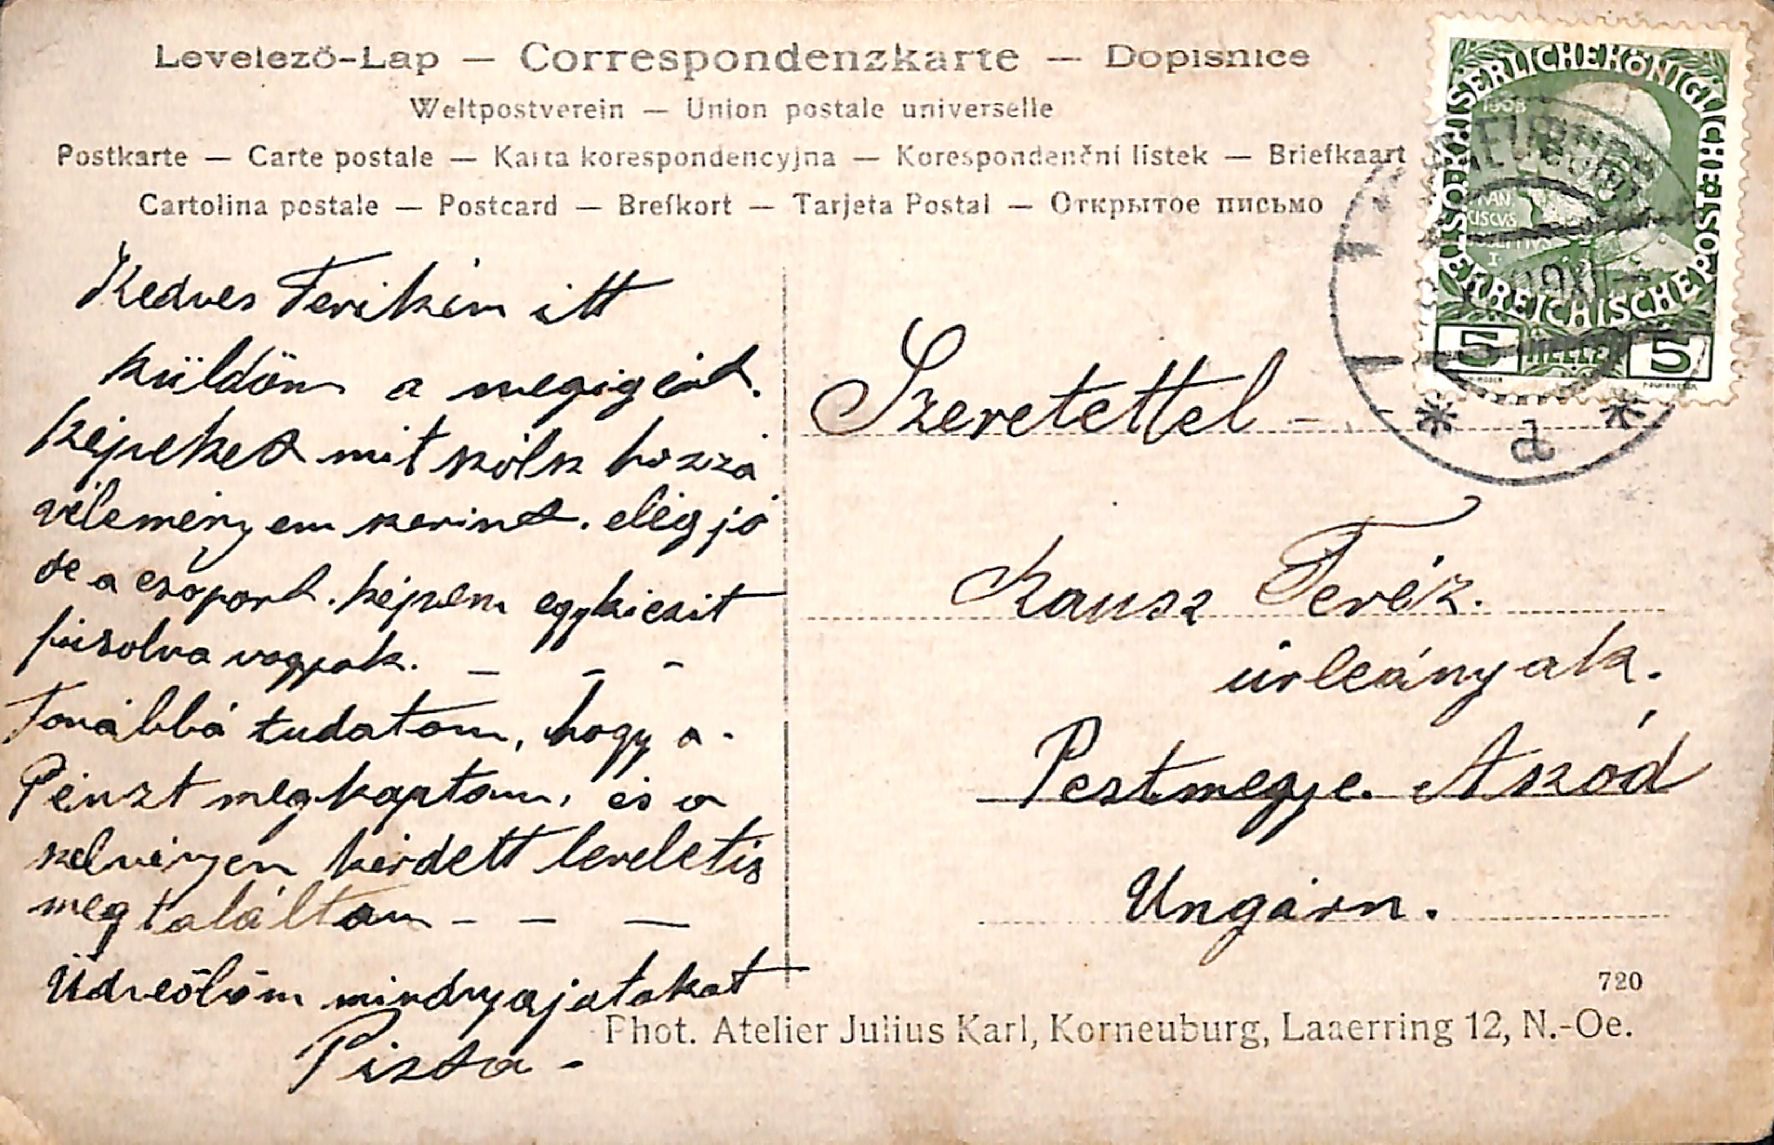 Levelező-Lap — Correspondenzkarte — Dopisnice
Weltpostverein — Union postale universelle
Postkarte — Carte postale — Karta korespondencyjna — Korespondenční listek — Briefkaart
Cartolina postale — Postcard — Brefkort — Tarjeta Postal — Открытое письмо
KAISERLICHE KÖNIGLICHE ÖSTERREICHISCHE POST
1908
FRAN
CISCVS
IOSEPHVS
I
5 HELLER 5
d
Kedves Terikém itt
küldöm a megigért.
képeket mit szólsz hozzá
véleményem szerint. elég jó
de a csoport. képem egykicsit
pisolva vagyok. — — —
Továbbá tudatom, hogy a.
Pénzt megkaptam, és a
szelvényen kérdett leveletis
megtaláltam — — —
Üdvözlöm mindnyajatokat
Pista —
Szeretettel —
Kausz Teréz.
úrleánynak.
Pestmegye. Aszód
Ungárn.
720
Phot. Atelier Julius Karl, Korneuburg, Laaerring 12, N.-Oe.